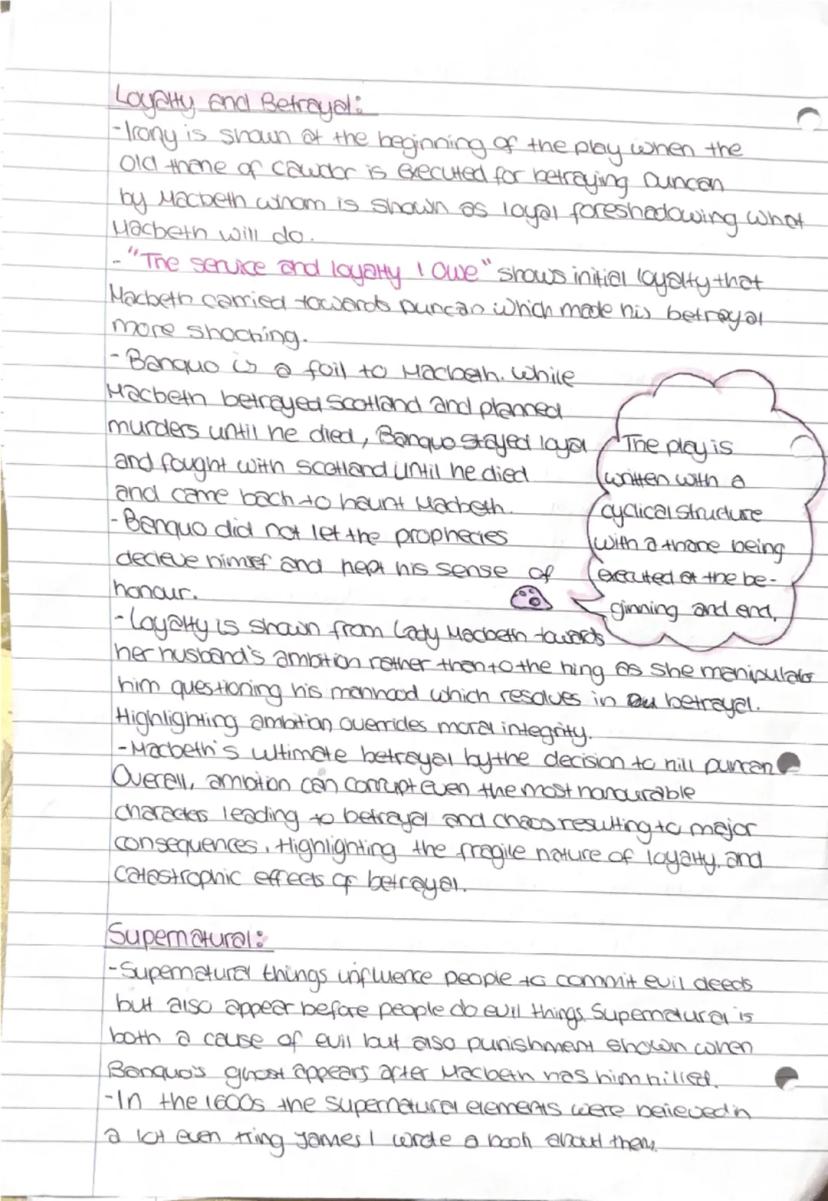 Loyalty and Betrayal:
-Irony is shown at the beginning of the play when the
old thane of cawdor is executed for betraying Duncan
by Macbeth whom is shown as loyal foreshadowing what
Macbeth will do.
- "The service and loyalty I owe" shows initial loyalty that
Macbeth carried towards Duncan which made his betrayal
more shocking.
- Banquo is a foil to Macbeth. While
Macbeth betrayed Scotland and planned
murders until he died, Banquo stayed loyal
and fought with scotland until he died
and came back to haunt Macbeth.
- Banquo did not let the prophecies
decieve himsef and kept his sense of
honour.
The play is
written with a
cyclical structure
with a thane being
executed at the be-
ginning and end.
- Loyalty is shown from Lady Macbeth towards
her husband's ambition rather than to the king as she manipulates
him questioning his manhood which resolves in betrayal.
Highlighting ambition overrides moral integrity.
- Macbeth's ultimate betrayal by the decision to kill Duncan
Overall, ambition can corrupt even the most honourable
characters leading to betrayal and chaos resulting to major
consequences. Highlighting the fragile nature of loyalty and
catastrophic effects of betrayal.
Supernatural:
-Supernatural things influence people to commit evil deeds
but also appear before people do evil things. Supernatural is
both a cause of evil but also punishment shown when
Banquo's ghost appears after Macbeth has him killed.
-In the 1600s the supernatural elements were believed in
a lot even King James I wrote a book about them.